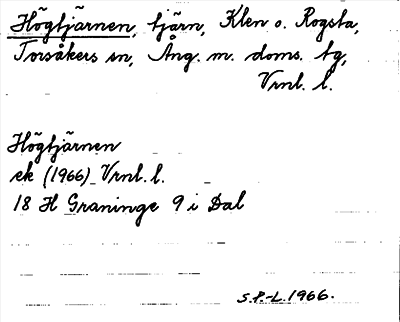 Högtjärnen, tjärn, Klen o. Rogsta,
Torsåkers sn, Ång. m. doms. tg,
Vrnl. l.
Högtjärnen
ek (1966) Vrnl. l.
18 H Graninge 9 i Dal
S.P.-L. 1966.